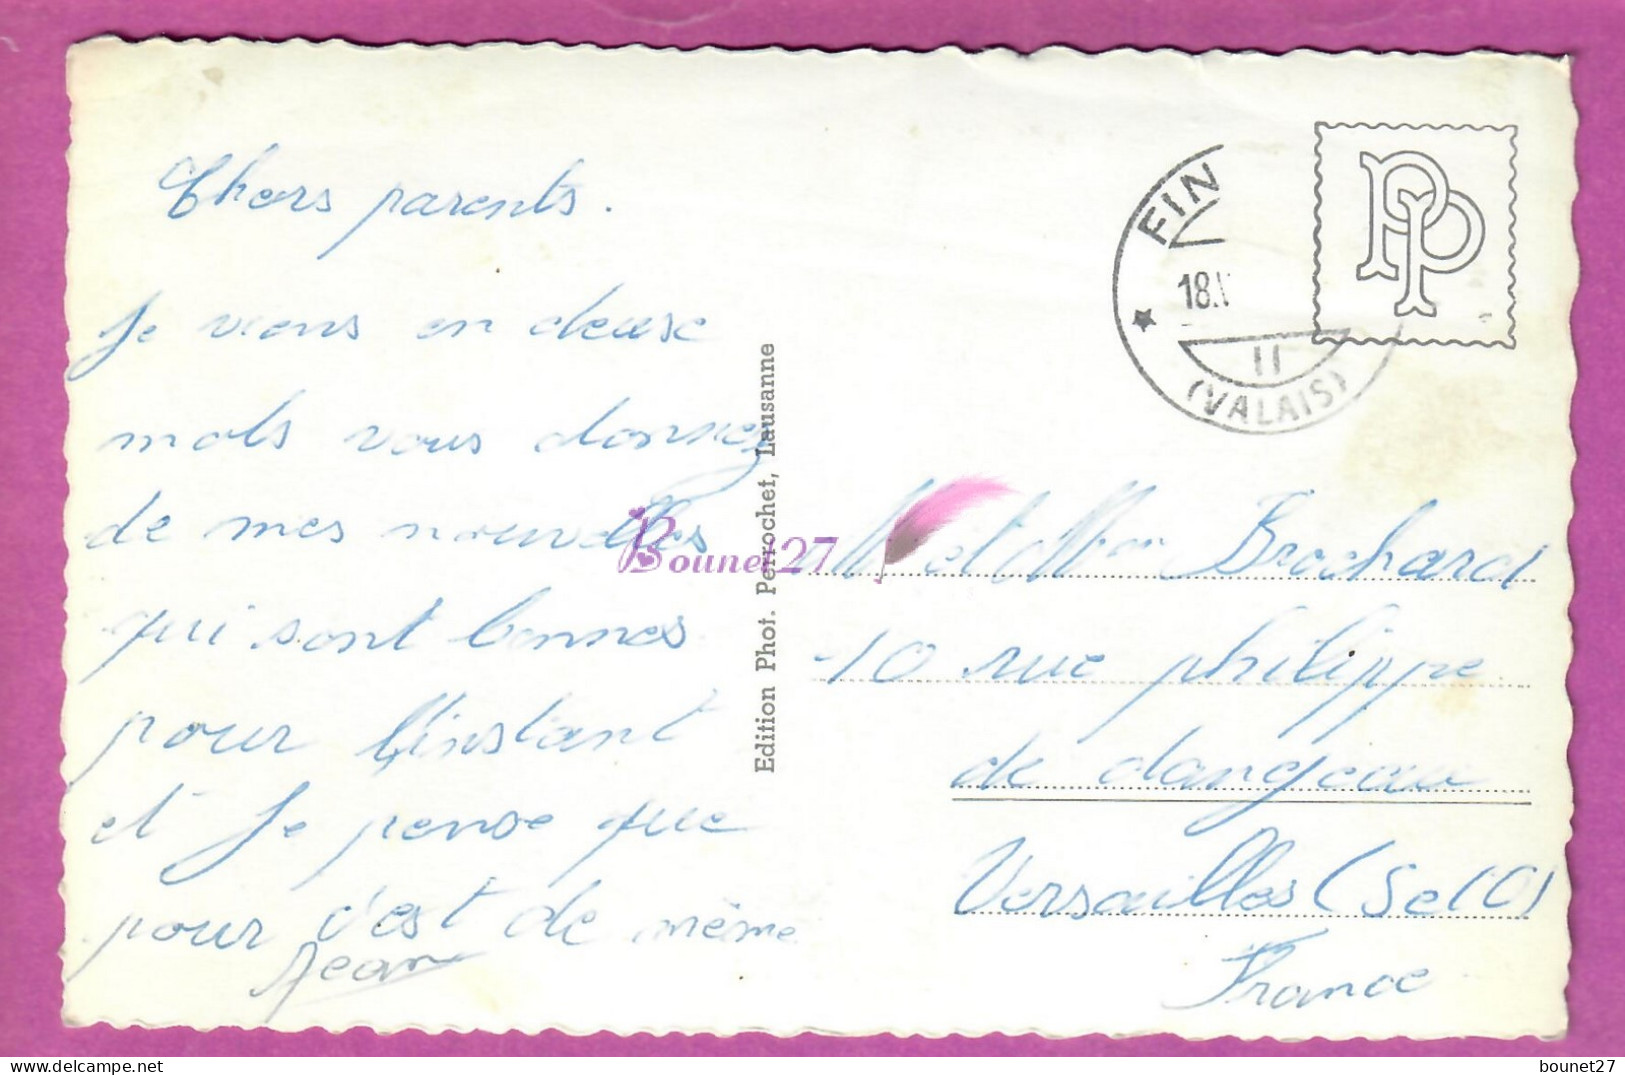 Chers parents.
Je viens en deux
mots vous donnez
de mes nouvelles
qui sont bonnes
pour l'instant
et Je pense que
pour c'est de même
Jean
Edition Phot. Perrochet, Lausanne
FIN
18.
11
(VALAIS)
PP
M et Mme Brochard
10 rue philippe
de dangeau
Versailles (S et O)
France
Bounet27
bounet27